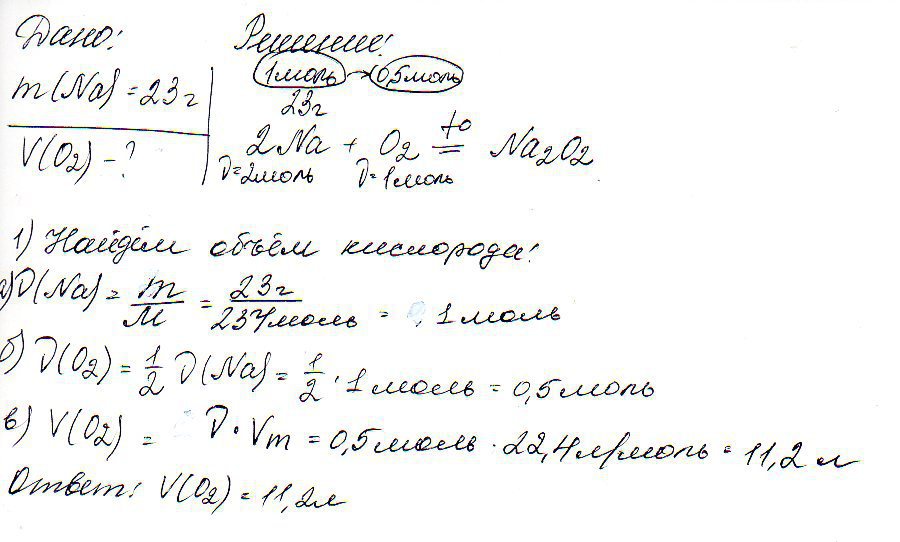 Дано: Решение:
1моль → 0,5моль
m(Na) = 23г 23г
2Na + O2 t° = Na2O2
V(O2) - ? ν=2моль ν=1моль
1) Найдём объём кислорода:
а) ν(Na) = m/M = 23г/23г/моль = 1моль
б) ν(O2) = 1/2 ν(Na) = 1/2 · 1моль = 0,5моль
в) V(O2) = ν · Vm = 0,5моль · 22,4л/моль = 11,2л
Ответ: V(O2) = 11,2л